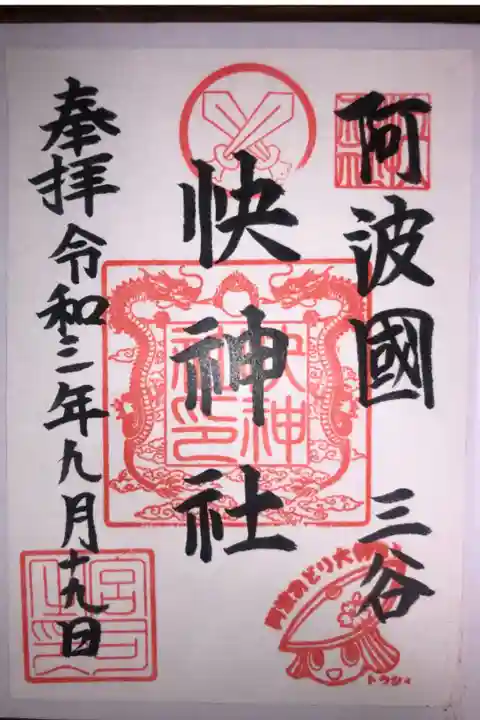 阿波國 三谷
快神社
奉拝 令和三年九月十九日
快神社印
阿波おどり大
トクシィ